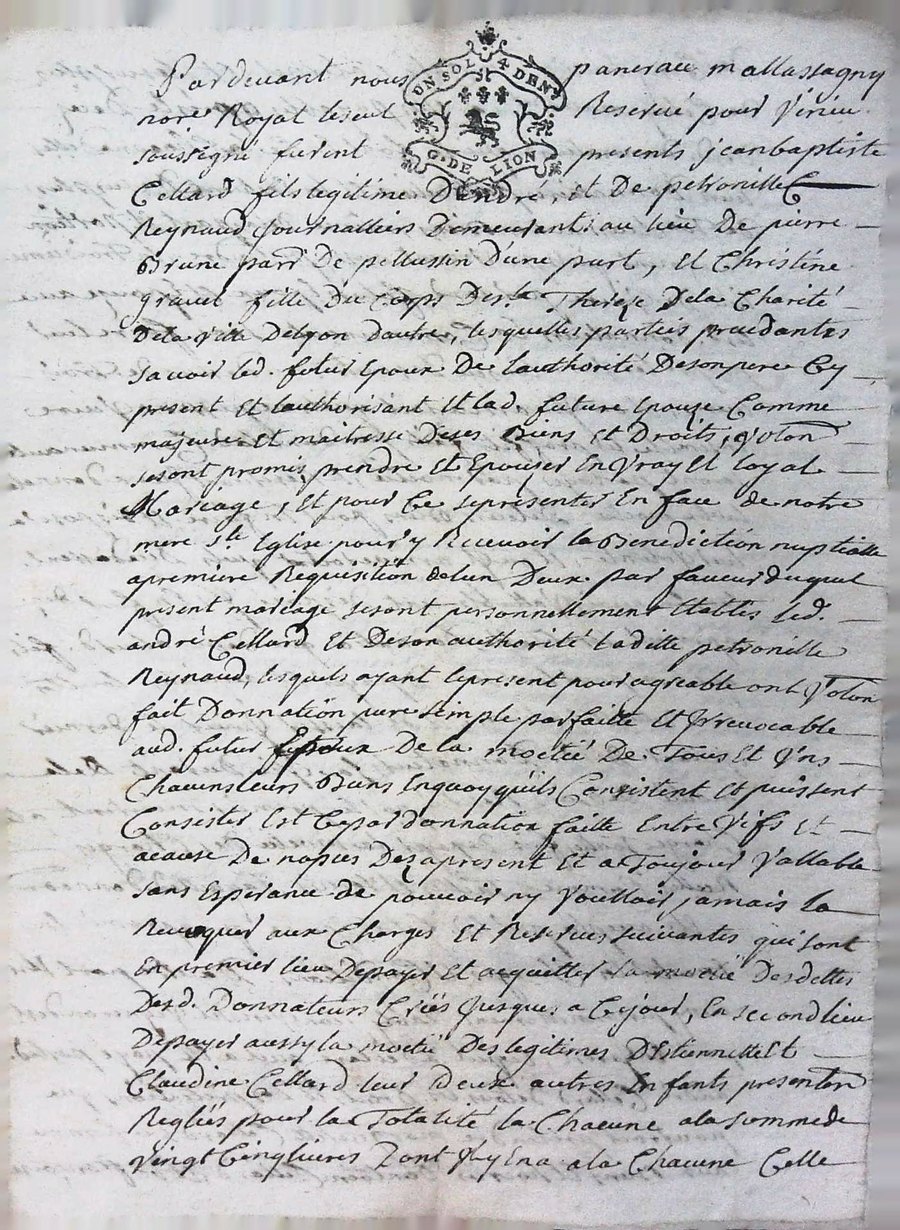 Pardevant nous UN SOL 4 DEN. pancrace mallassagny
nore Royal the seul Reservé pour Virieu
soussigné furent G. DE LION presents jeanbaptiste
Cellard fils legitime D'andré, et De petronille
Reynaud Journalliers Demeurants au lieu De pierre
Brune parr. De pellussin d'une part, et Christine
gravet fille Du Corps De ste Therese Dela Charité
Dela Ville Delyon dautre, lesquelles parties procedantes
savoir led. futur Epoux De lauthorité Desonpere Cy
present et lauthorisant et lad. future Epouze Comme
majeure et maitresse Deses Biens et Droits,
sesont promis prendre et Epouser En Vray et loyal
Mariage, et pour Ce sepresenter En face de notre
mere ste Eglise pour y Recevoir la Benediction nuptialle
apremiere Requisition delun Deux par faveur duquel
present mariage sesont personnellement Etablis led.
andré Cellard et Deson authorité laditte petronille
Reynaud, lesquels ayant lepresent pour agreable ont
fait Donnation pure simple parfaitte et Irrevocable
aud. futur Epoux De la moctié De Tous et Uns
Chacunsleurs Biens Enquoy quils Consistent et puissent
Consister Est Cepar donnation faitte Entre Vifs et
acause De nopces Dezapresent et a Toujour Vallable
sans Esperance de pouvoir ny Voulloir jamais la
Revoquer aux Charges et Reserves suivantes qui sont
En premier lieu Depayer et acquitter la moctié Desdettes
Desd. Donnateurs Créés Jusques a Cejour, En secondlieu
Depayer aussy la moctié Des legitimes D'Estiennette et
Claudine Cellard leur Deux autres Enfants presentem
Regléés pour la Totalité la Chacune ala somme de
Vingt Cinq livres Zont Il y En a ala Chacune Celle